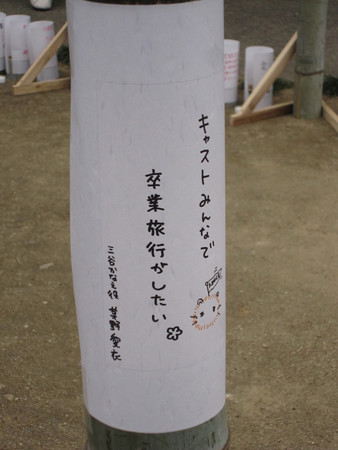 キャストみんなで
卒業旅行がしたい
三谷かなえ役 茅野愛衣